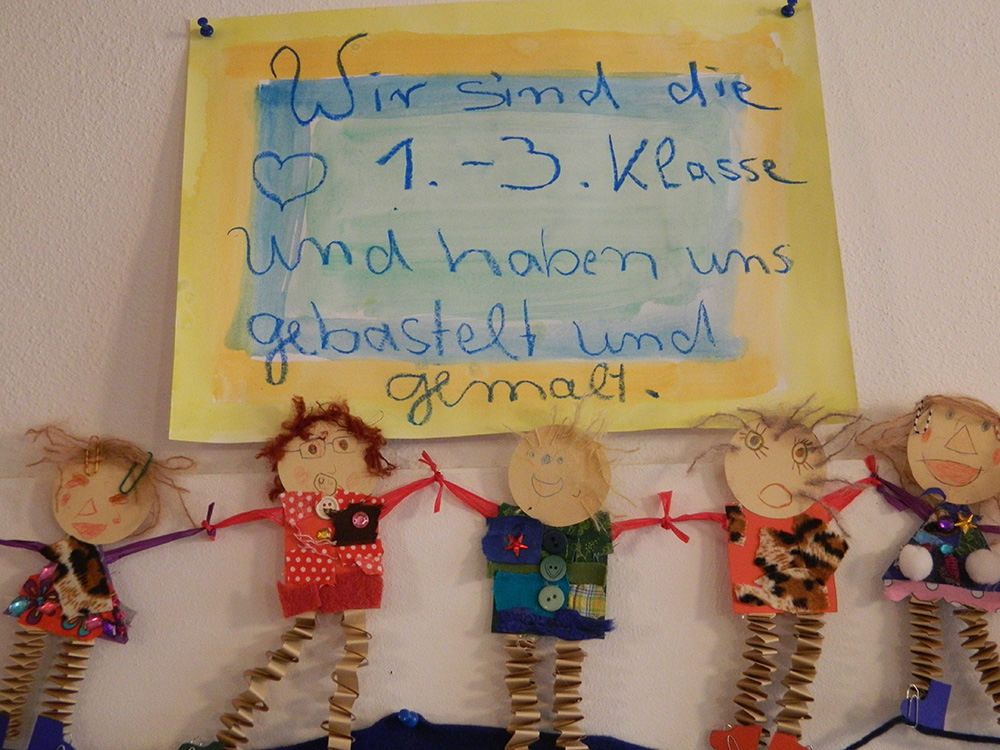 Wir sind die
♡ 1.-3. Klasse
und haben uns
gebastelt und
gemalt.